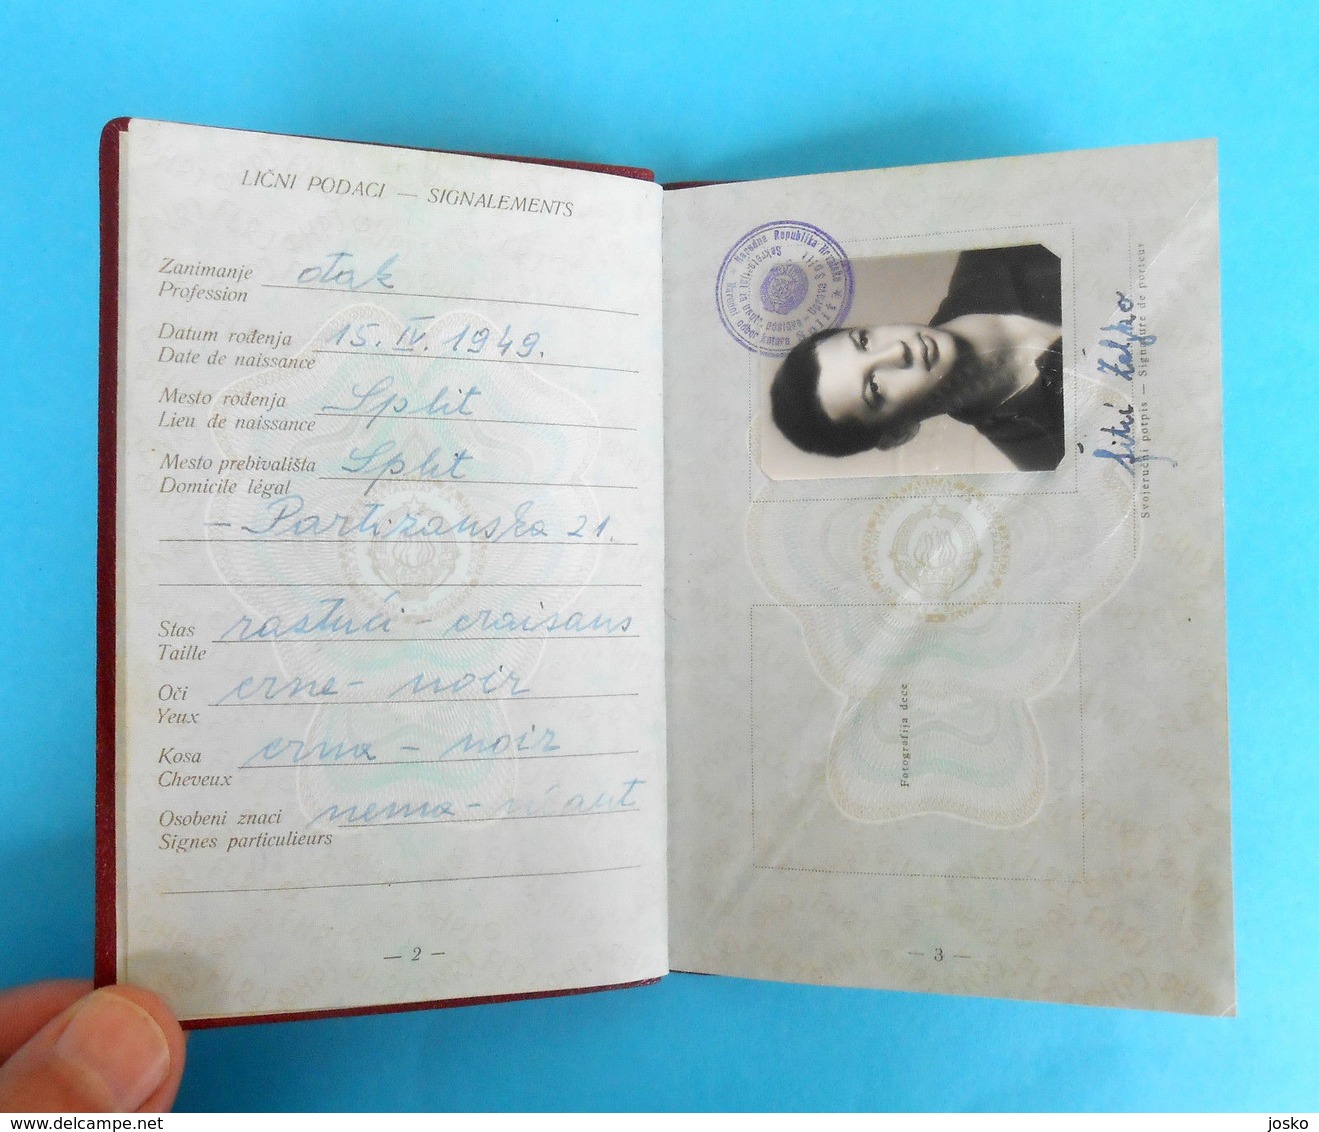 LIČNI PODACI — SIGNALEMENTS
Zanimanje
Profession
đak
Datum rođenja
Date de naissance
15. IV. 1949.
Mesto rođenja
Lieu de naissance
Split
Mesto prebivališta
Domicile légal
Split
- Partizanska 21.
Stas
Taille
rastući - craisans
Oči
Yeux
crne - noir
Kosa
Cheveux
crna - noir
Osobeni znaci
Signes particulieurs
nema - néant
— 2 —
Narodna Republika Hrvatska
Narodni odbor kotara Split
Sekretarijat za unutr. poslove - Uprava
Split
Željko
Svojeručni potpis — Signature de porteur
Fotografija dece
— 3 —
www.delcampe.net
josko